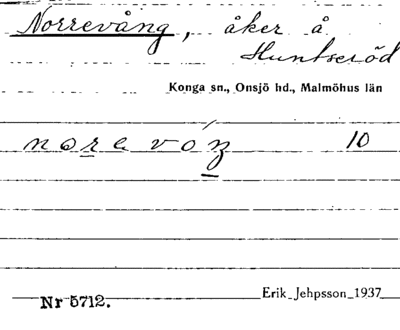 Norrevång, åker å
Huntseröd
Konga sn., Onsjö hd., Malmöhus län
norevóŋ 10
Nr 5712. Erik Jehpsson 1937